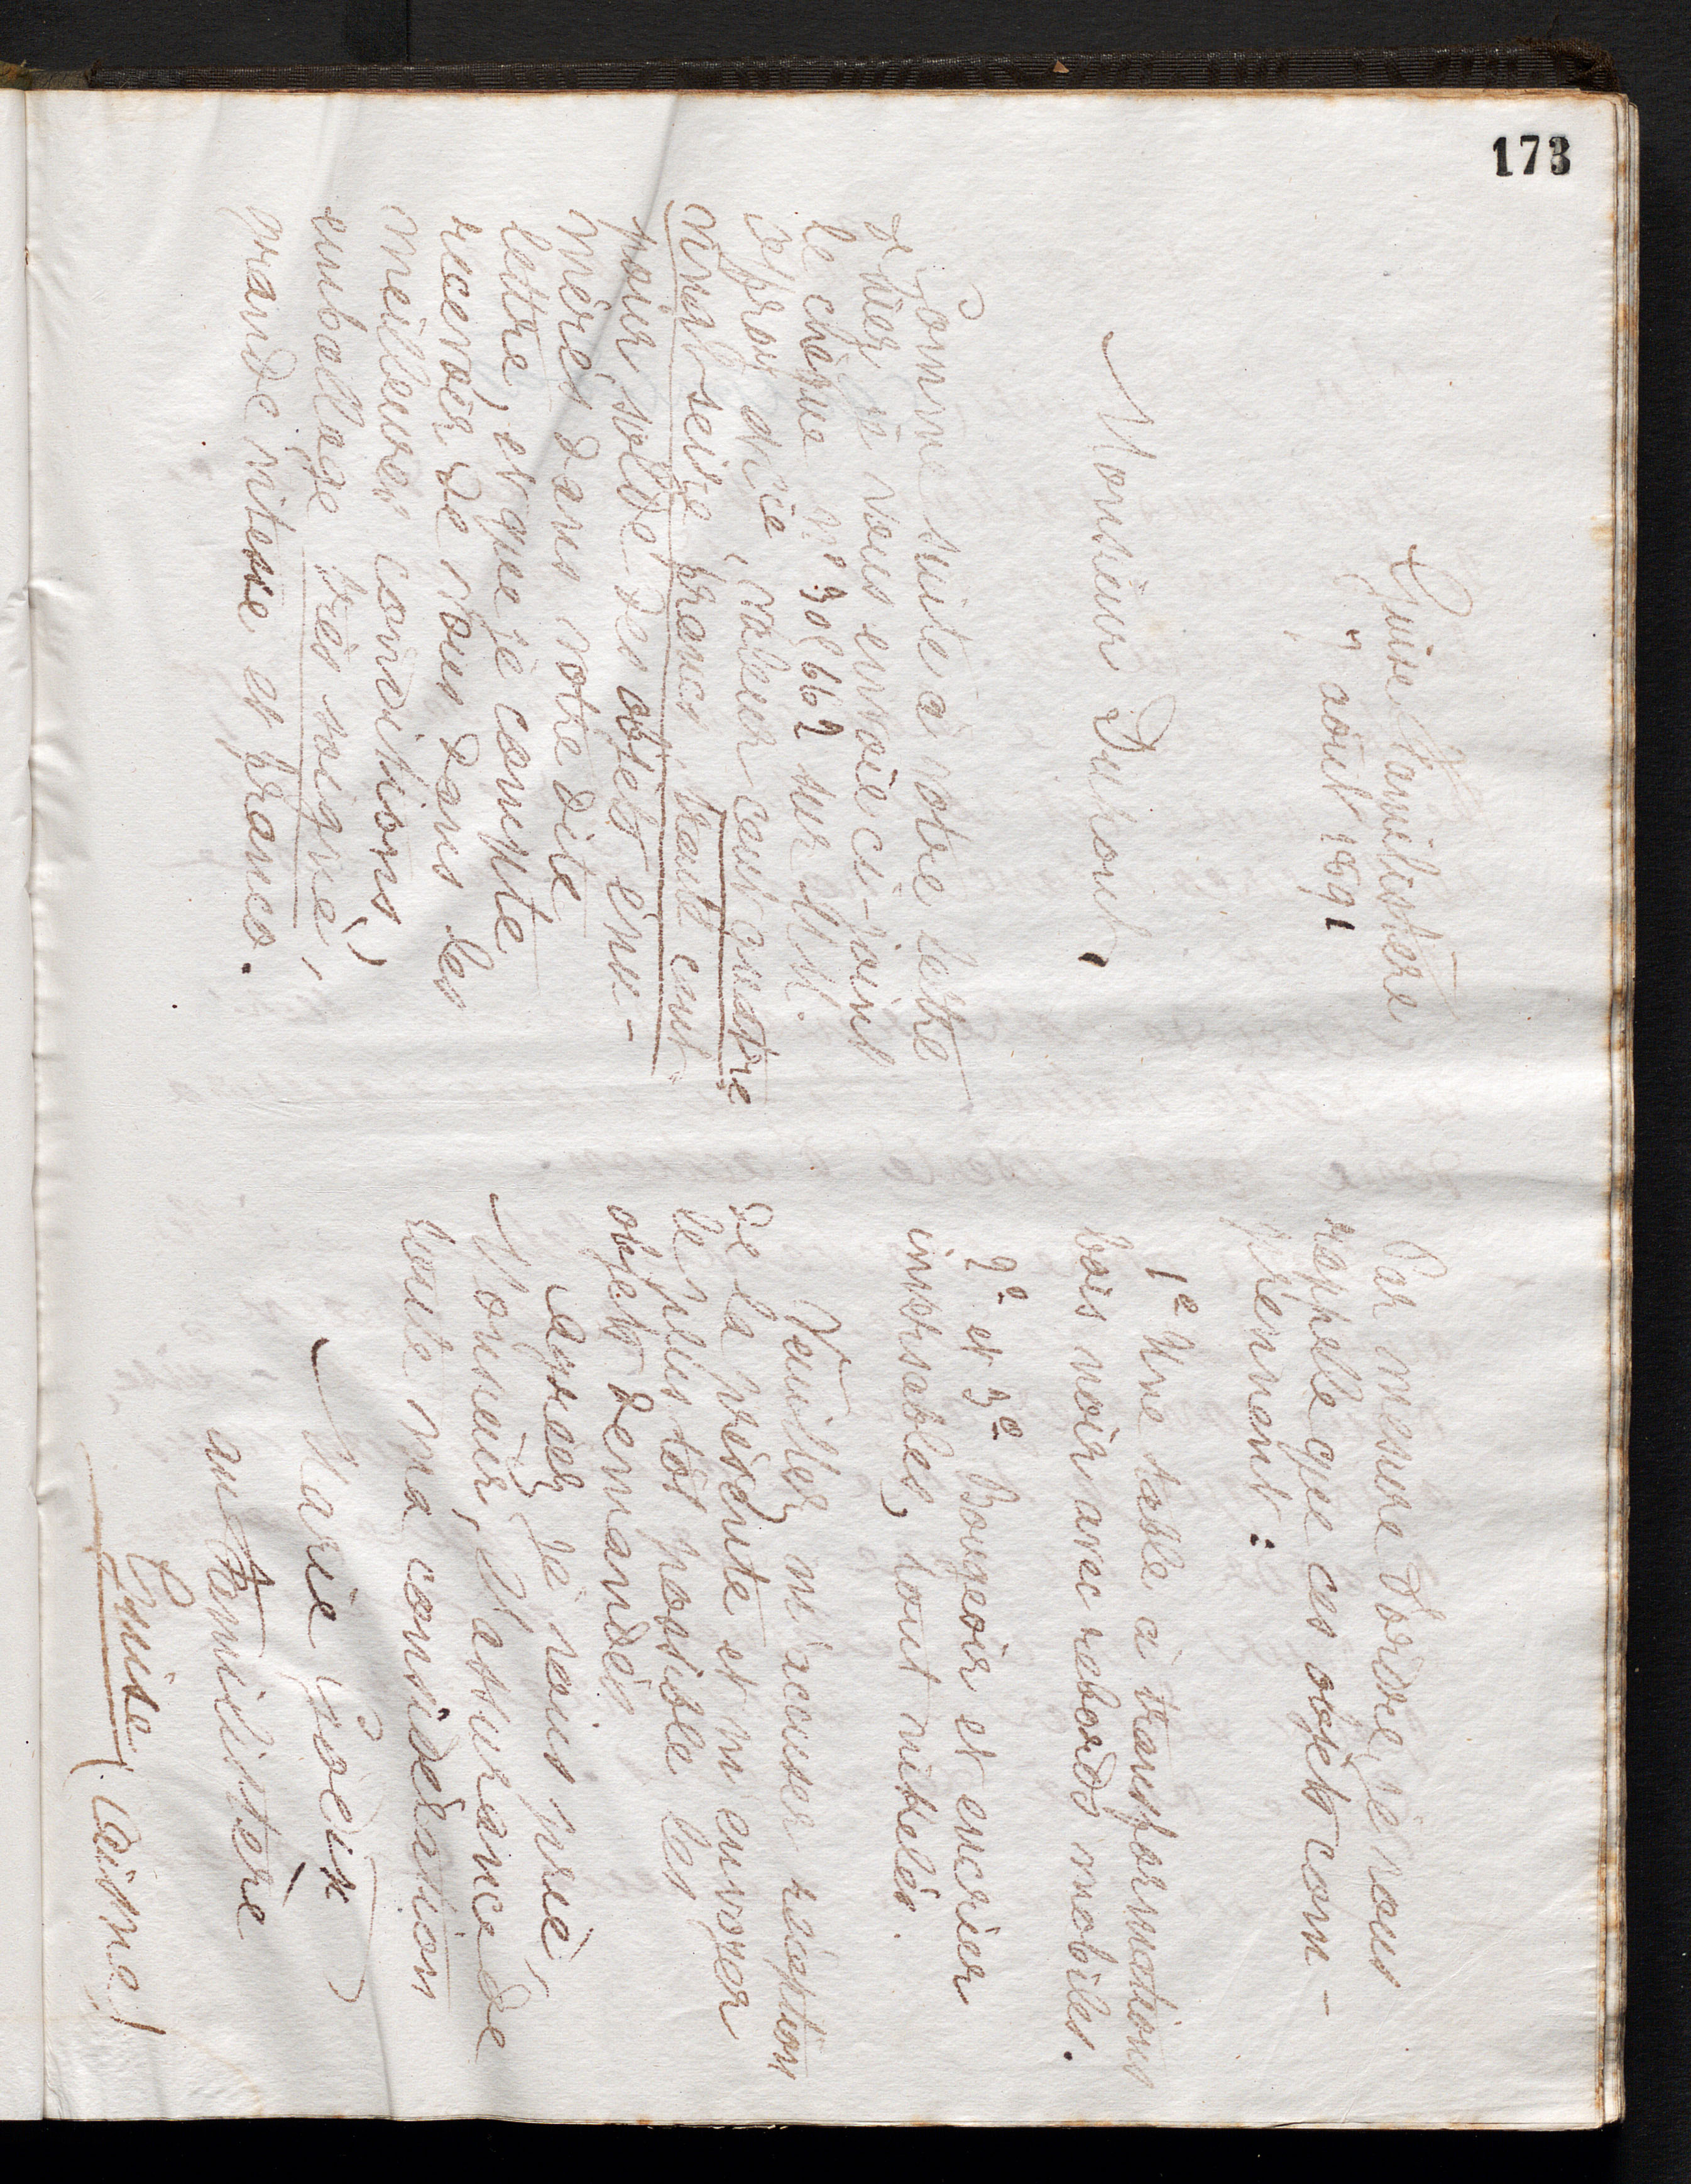 173
Guise Familistère
7 août 1891
Monsieur Dupont,
Comme suite à votre lettre
d'hier je vous envoie ci-joint
le chèque n° 301662 sur MM.
Offroy et Cie, valeur cent quatre
vingt seize francs trente cent.
pour solde des objets énu-
mérés dans votre dite
lettre, et que je compte
recevoir de vous dans les
meilleures conditions,
emballage très soigné,
grande vitesse et franco.
Par mesure d'ordre, je vous
rappelle que ces objets com-
prennent :
1e Une table à transformations
bois noir avec rebords mobiles.
2e et 3e Bougeoir et encrier
inversables, tout nickelés.
Veuillez m'accuser réception
de la présente et m'envoyer
le plus tôt possible les
objets demandés
Agréez, je vous prie,
Monsieur, l'assurance de
toute ma considération
Marie Godin
au Familistère
Guise (Aisne)